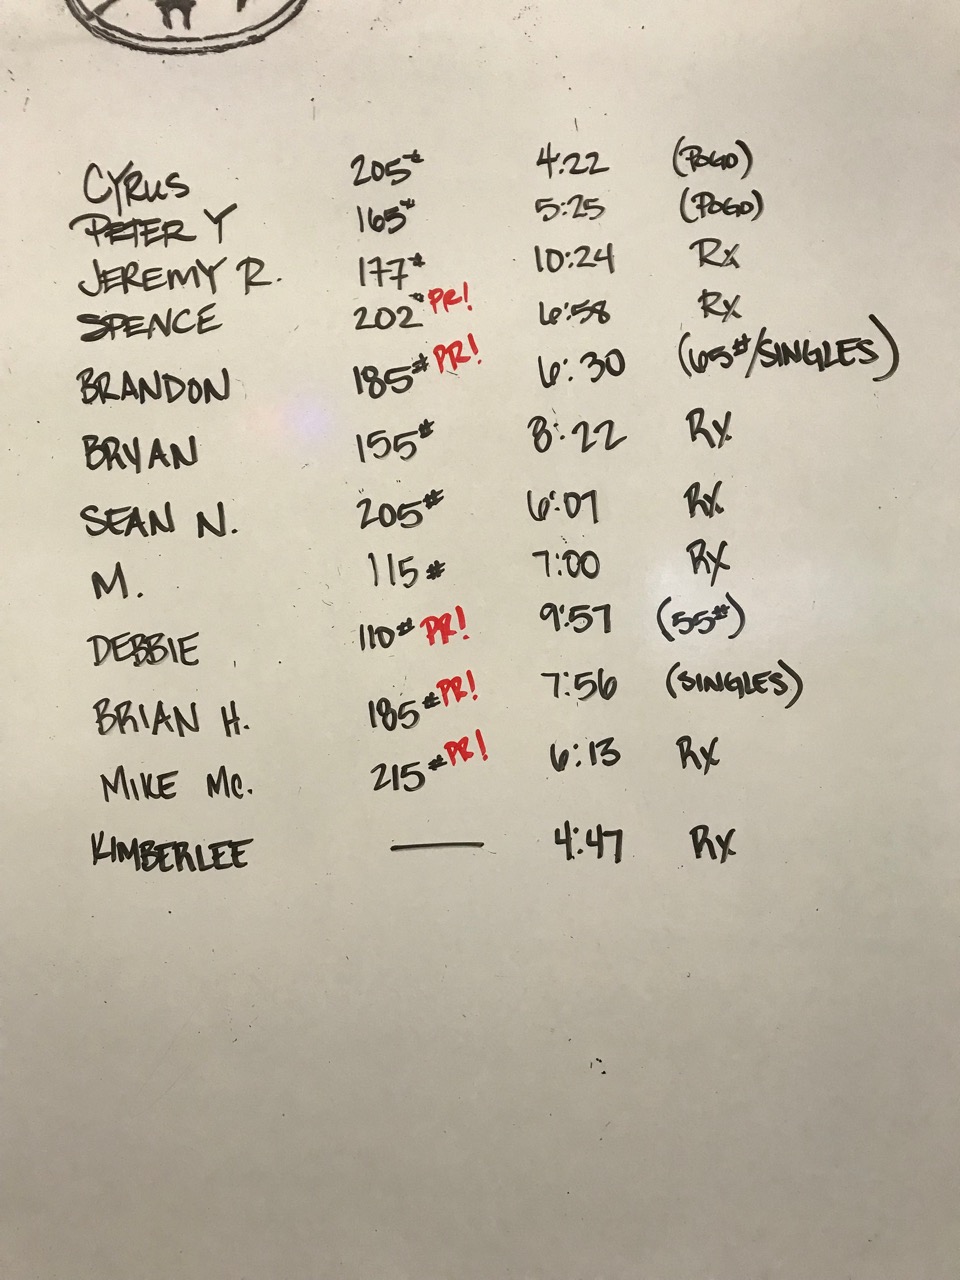 CYRUS 205# 4:22 (POGO)
PETER Y 165# 5:25 (POGO)
JEREMY R. 177# 10:24 Rx
SPENCE 202# PR! 6:58 Rx
BRANDON 185# PR! 6:30 (65#/SINGLES)
BRYAN 155# 8:22 Rx
SEAN N. 205# 6:07 Rx
M. 115# 7:00 Rx
DEBBIE 110# PR! 9:57 (55#)
BRIAN H. 185# PR! 7:56 (SINGLES)
MIKE Mc. 215# PR! 6:13 Rx
KIMBERLEE — 4:47 Rx